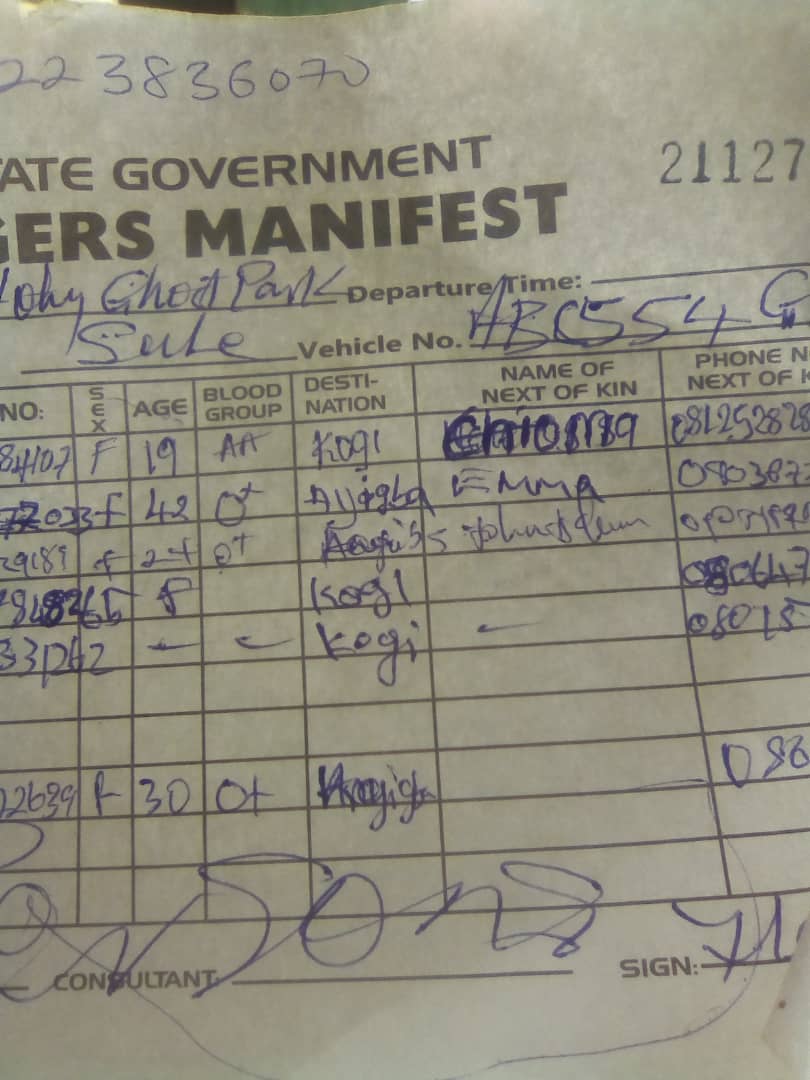 223836070
ATE GOVERNMENT
21127
GERS MANIFEST
Holy Ghost Park Departure Time:
Sule Vehicle No. ABC554
NO: SEX AGE BLOOD GROUP DESTI-NATION NAME OF NEXT OF KIN PHONE N NEXT OF K
84107 F 19 AA Kogi Chioma 081252828
F 42 O+ Ayigba Emma 0803877
29189 F 24 O+
F Kogi 080647
331262 - - Kogi - 08015
02639 F 30 O+ 086
CONSULTANT: SIGN: